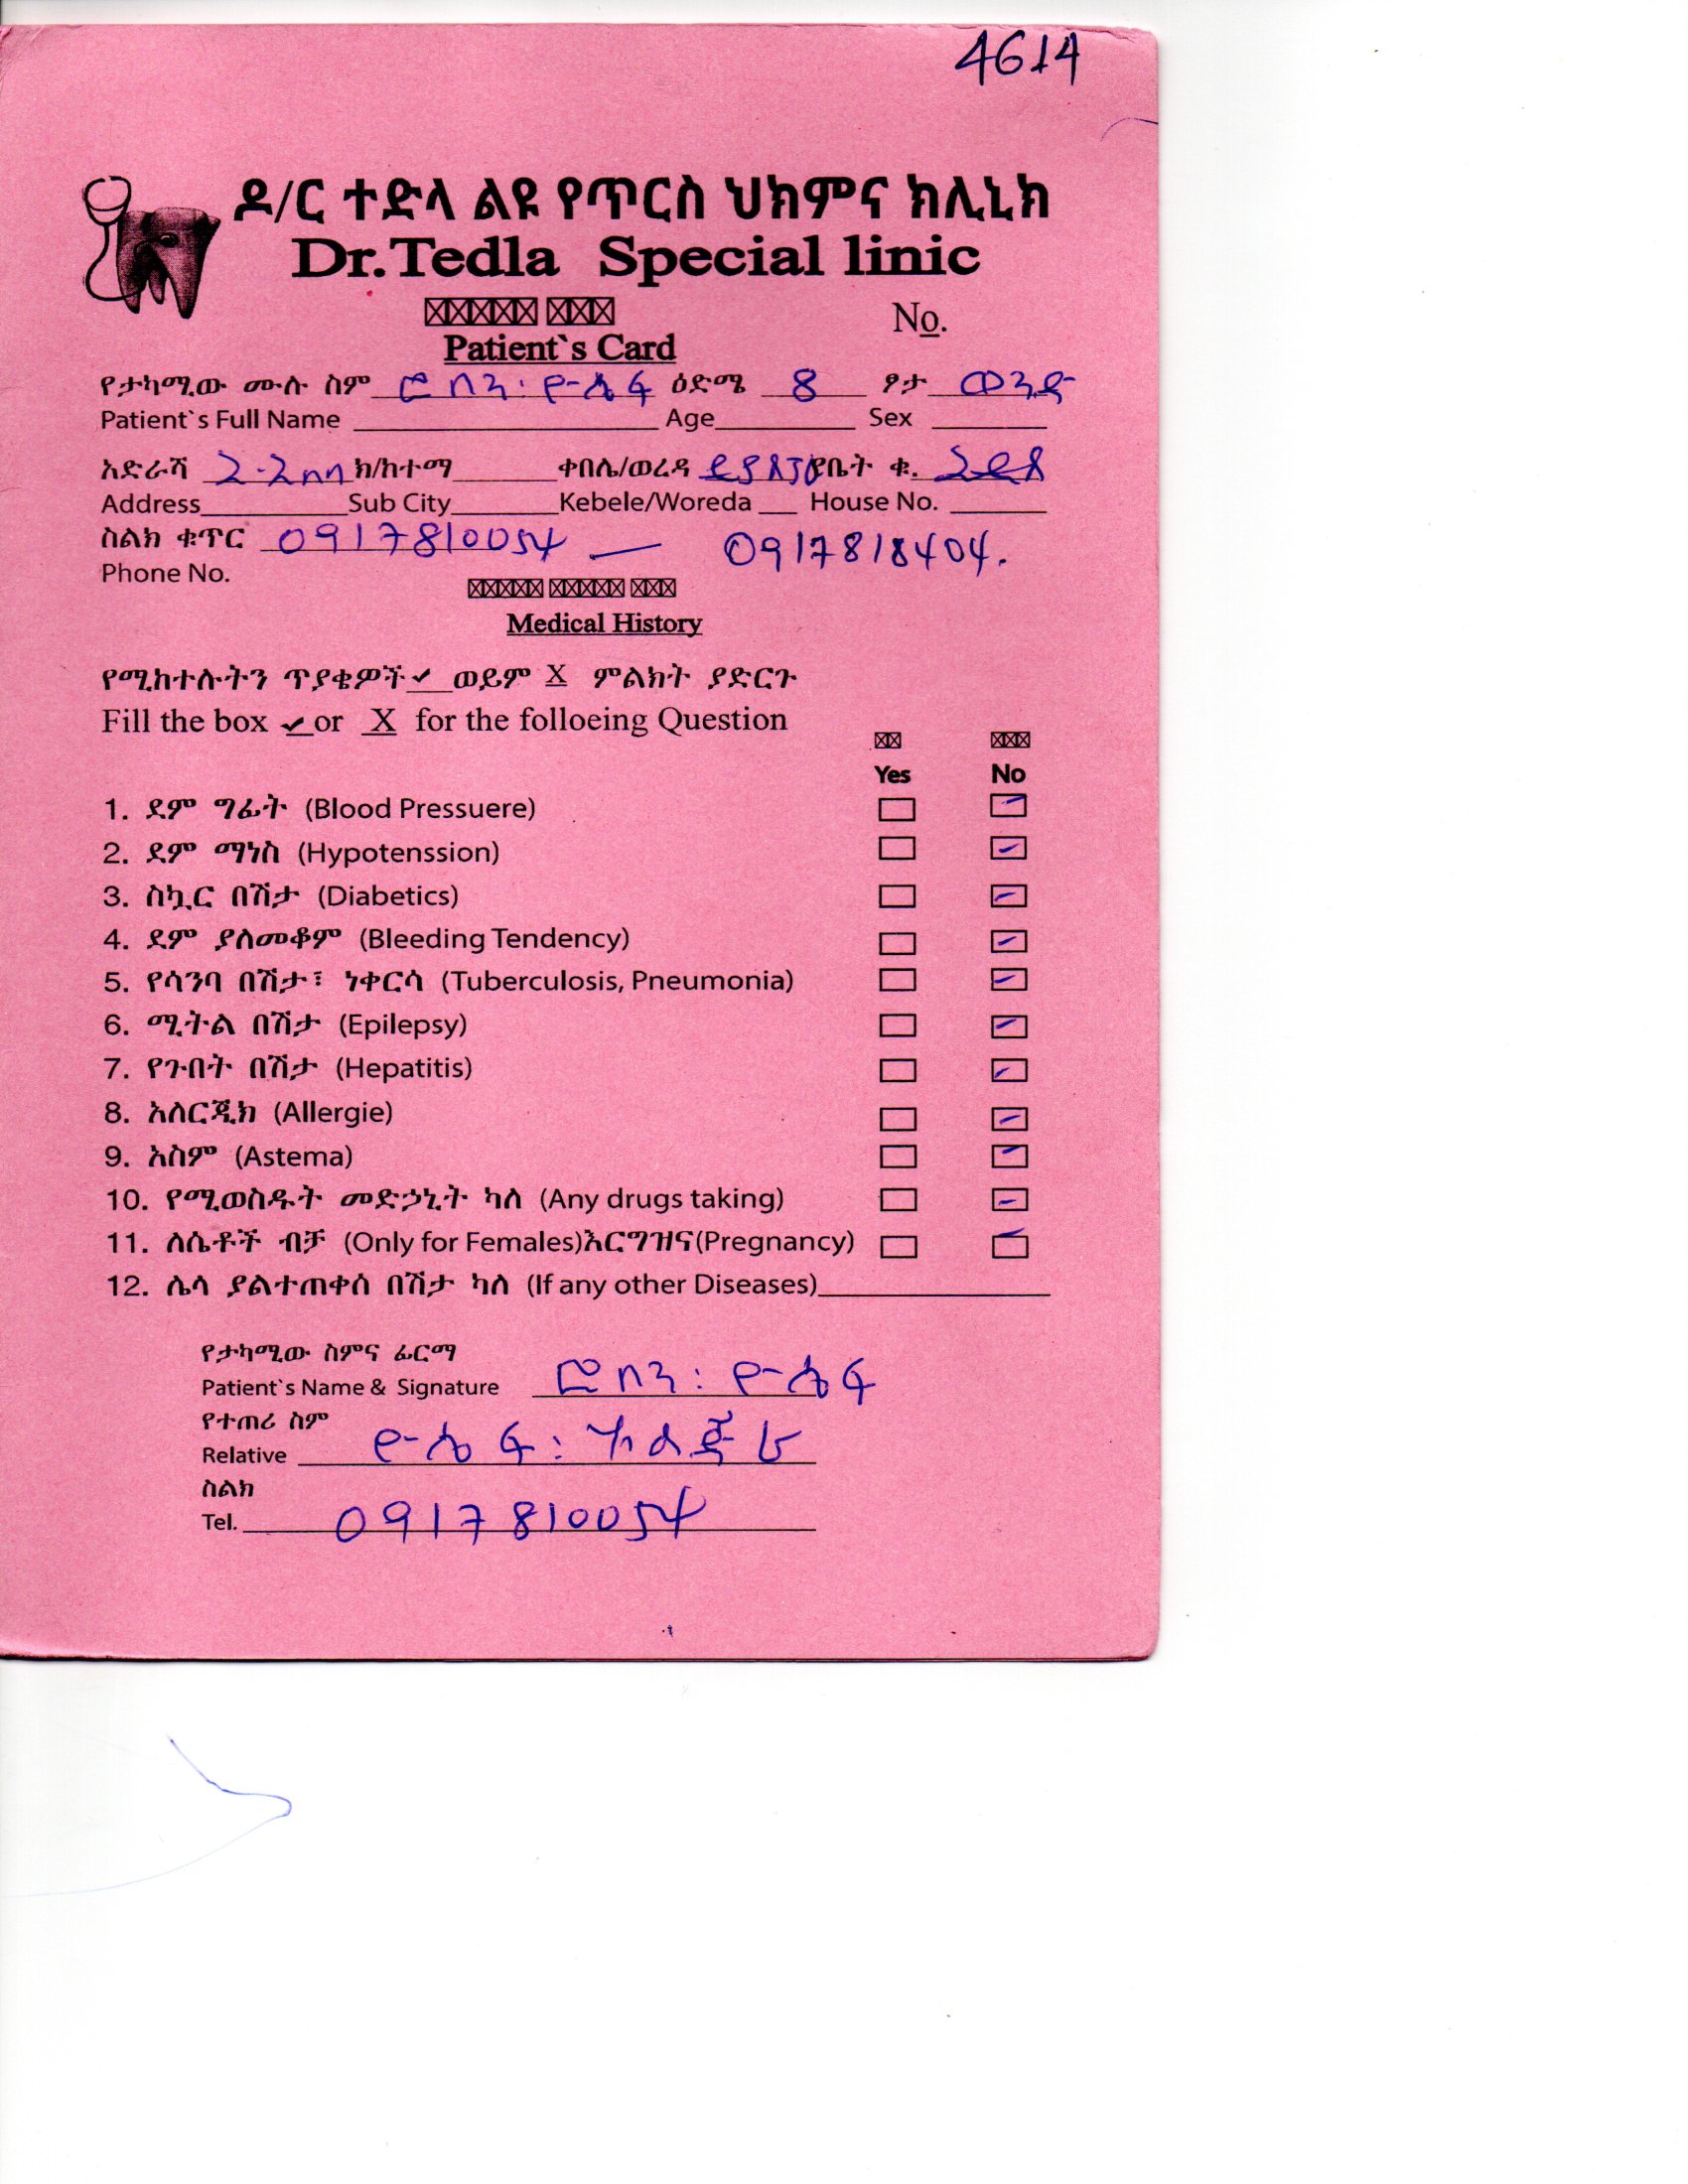 4614
ዶ/ር ተድላ ልዩ የጥርስ ህክምና ክሊኒክ
Dr.Tedla Special linic
No.
Patient`s Card
የታካሚው ሙሉ ስም ሮበን፡ ዮሴፍ ዕድሜ 8 ፆታ ወንድ
Patient`s Full Name Age Sex
አድራሻ ክ/ከተማ ቀበሌ/ወረዳ የቤት ቁ.
Address Sub City Kebele/Woreda House No.
ስልክ ቁጥር 0917810054 — 0917818404.
Phone No.
Medical History
የሚከተሉትን ጥያቄዎች ✓ ወይም X ምልክት ያድርጉ
Fill the box ✓ or X for the folloeing Question
Yes No
1. ደም ግፊት (Blood Pressuere)
2. ደም ማነስ (Hypotenssion)
3. ስኳር በሽታ (Diabetics)
4. ደም ያለመቆም (Bleeding Tendency)
5. የሳንባ በሽታ፣ ነቀርሳ (Tuberculosis, Pneumonia)
6. ሚትል በሽታ (Epilepsy)
7. የጉበት በሽታ (Hepatitis)
8. አለርጂክ (Allergie)
9. አስም (Astema)
10. የሚወስዱት መድኃኒት ካለ (Any drugs taking)
11. ለሴቶች ብቻ (Only for Females)እርግዝና(Pregnancy)
12. ሌላ ያልተጠቀሰ በሽታ ካለ (If any other Diseases)
የታካሚው ስምና ፊርማ
Patient`s Name & Signature ሮበን፡ ዮሴፍ
የተጠሪ ስም
Relative ዮሴፍ፡
ስልክ
Tel. 0917810054